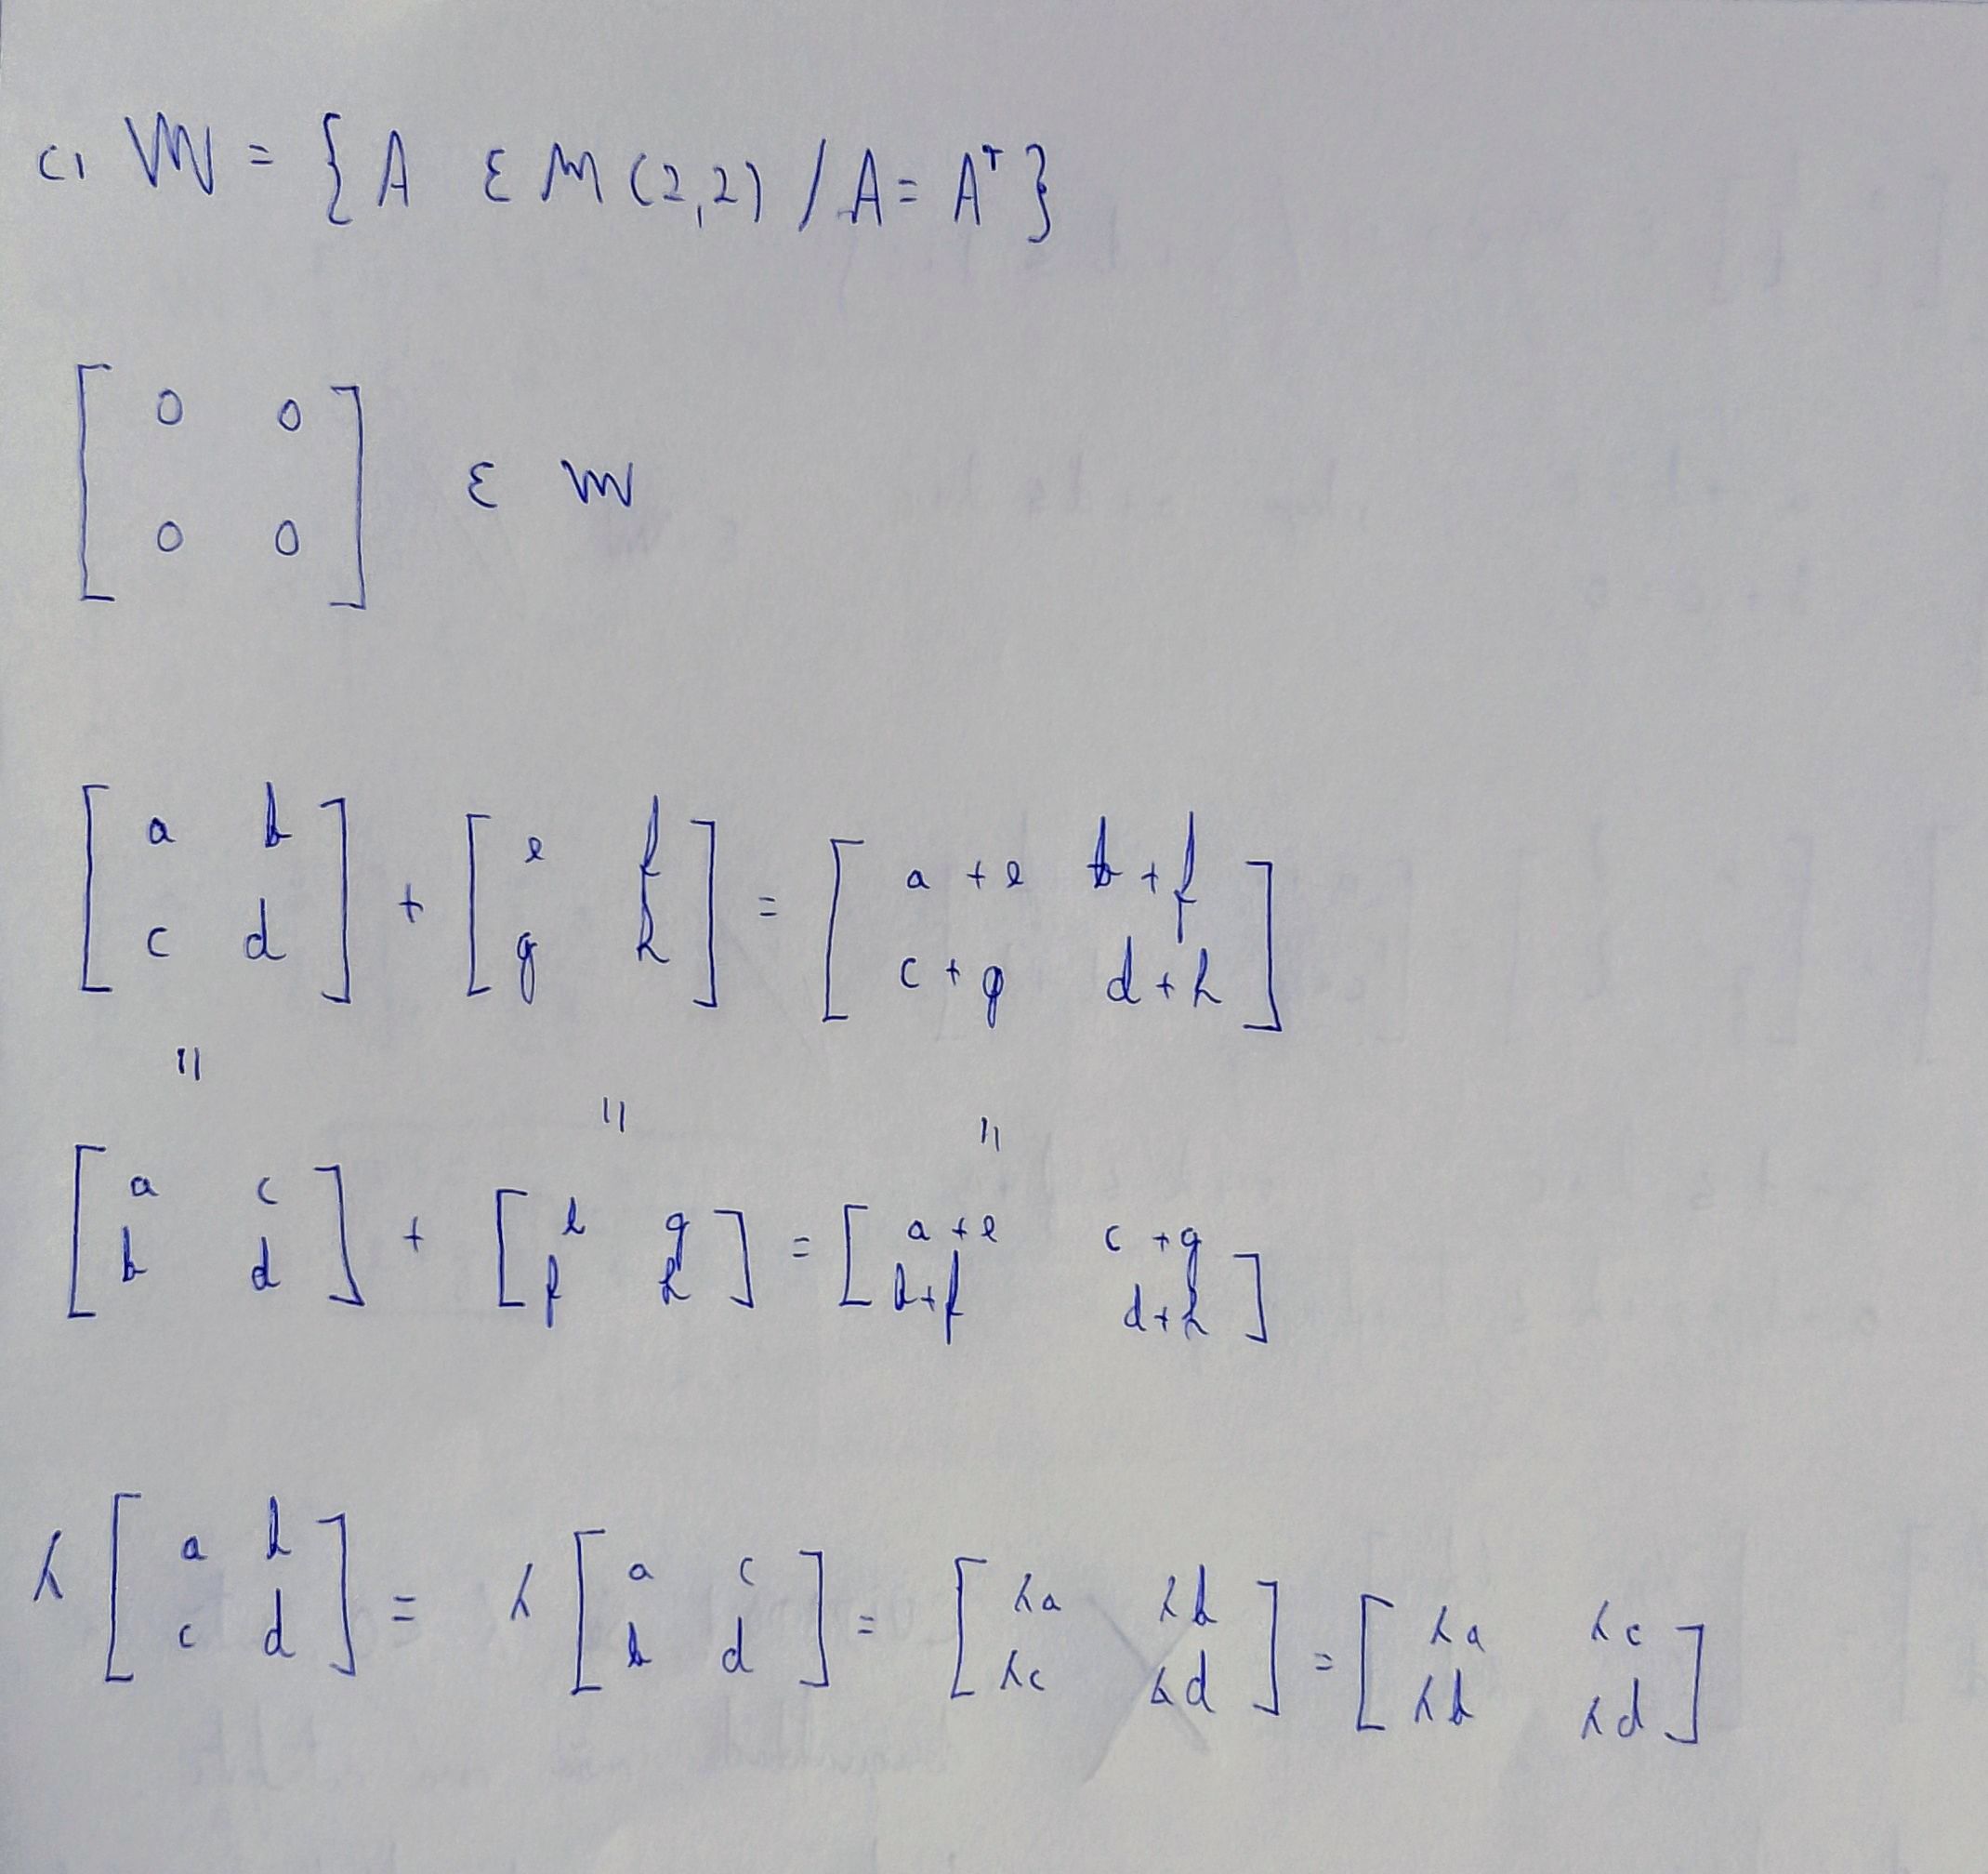 c) W = { A ε M (2,2) / A = Aᵀ }
[ 0 0
0 0 ] ε W
[ a b
c d ] + [ e f
g h ] = [ a + e b + f
c + g d + h ]
" " "
[ a c
b d ] + [ e g
f h ] = [ a + e c + g
b + f d + h ]
λ [ a b
c d ] = λ [ a c
b d ] = [ λa λb
λc λd ] = [ λa λc
λb λd ]